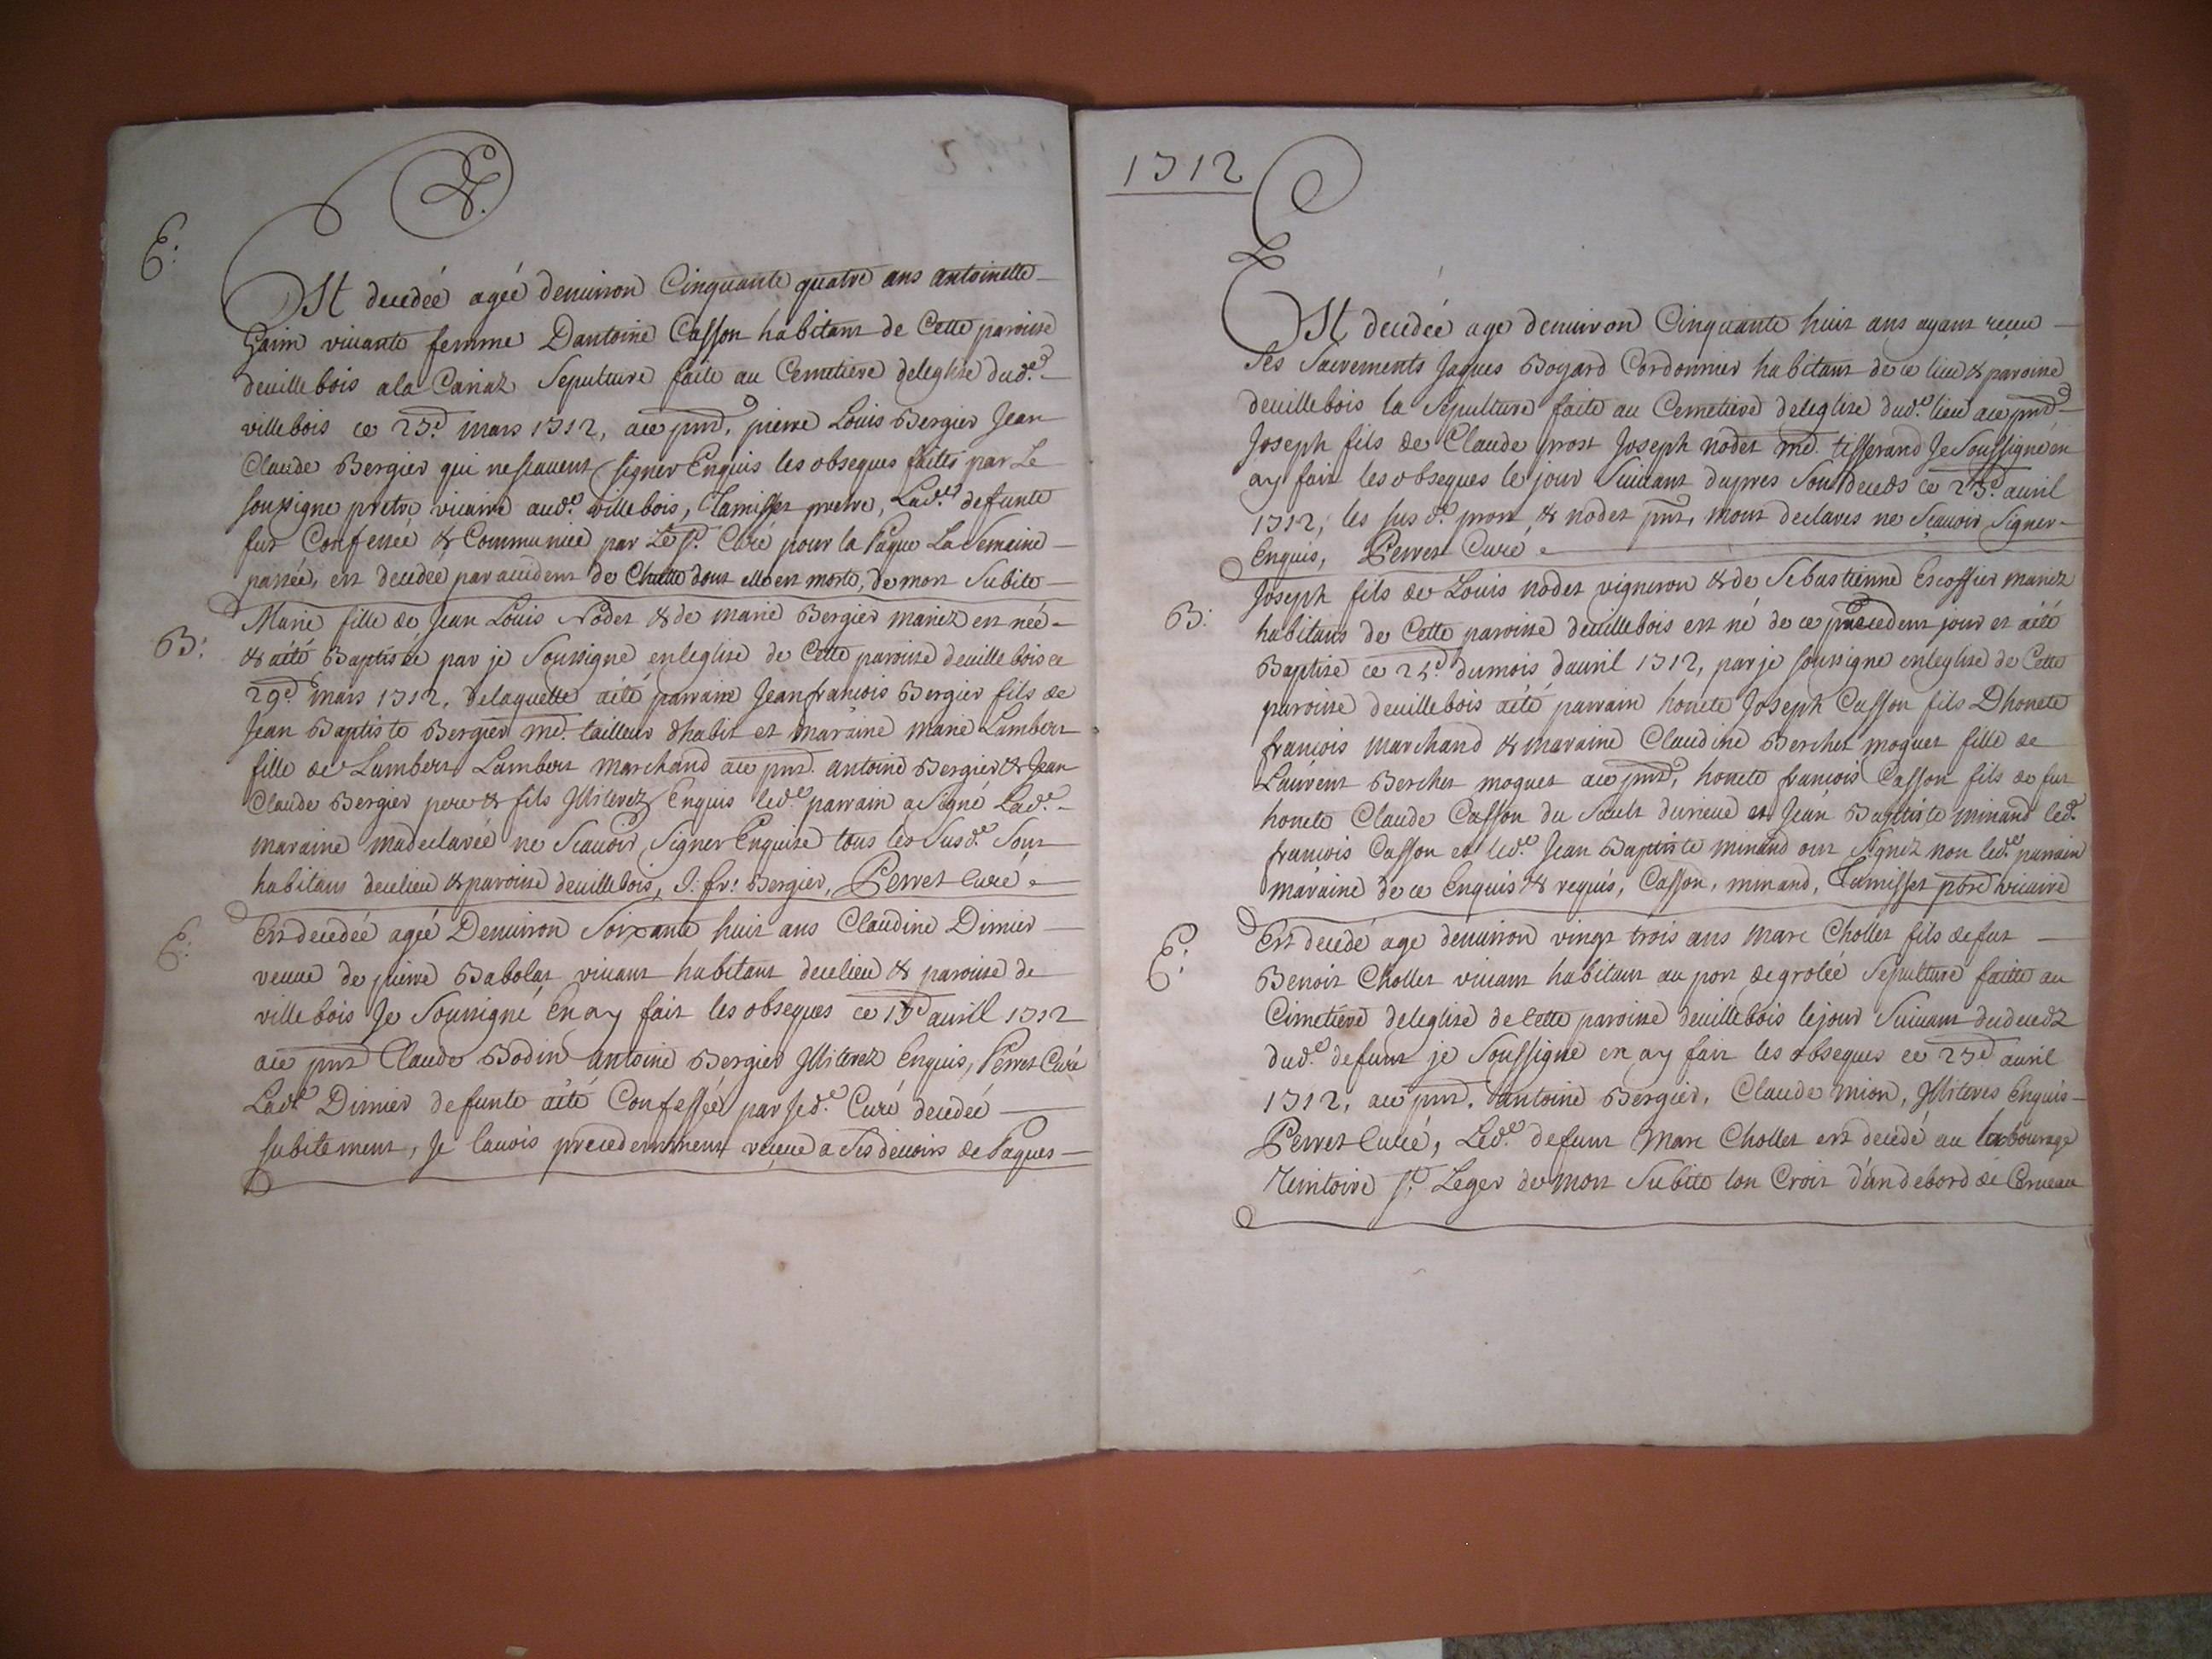 E.
Est decedéé agéé denuiron Cinquante quatre ans antoinette
viuante femme Dantoine Casson habitant de Cette paroisse
deuillebois ala Cariaz Sepulture faite au Cemetiere deleglise dud.e
villebois ce 23.e mars 1712, aue pnts. pierre Louis Bergier Jean
Claude Bergier qui nescauent signer Enquis les obseques faites par Le
soussigne pretre vicaire aud.e villebois, pretre, Lad.e defunte
fut Confesséé & Communiéé par Le s.r Curé pour la Paque La Semaine
passéé, est decedéé par accident de Chutte dont elle est morte, de mort Subite
B:
Marie fille de Jean Louis Nodet & de marie Bergier mariez est néé
& aété Baptiséé par je Soussigne enleglise de Cette paroisse deuillebois ce
29.e mars 1712. delaquelle aété parrain Jean francois Bergier fils de
Jean Baptiste Bergier md. tailleur dhabit et maraine marie Lambert
fille de Lambert Lambert marchand aue pnts. antoine Bergier & Jean
Claude Bergier pere & fils Jlliterez Enquis led.e parrain a Signé Lad.e
maraine madeclaréé ne Scauoir Signer Enquise tous les Susd.e Sont
habitans decelieu & paroisse deuillebois, J. fr: Bergier, Perret Curé
E.
Est decedéé agéé Denuiron Soixante huit ans Claudine Dimier
veuue de pierre Babolat viuant habitant decelieu & paroisse de
villebois Je Soussigné En ay fait les obseques ce auril 1712
aue pnts Claude Bodin antoine Bergier Jlliterez Enquis, Perret Curé
Lad.e Dimier defunte aété Confesséé par Jed.e Curé decedéé
subitement, Je lauois precedemment receue a Ses deuoirs de Paques
1712
Est decedéé age denuiron Cinquante huit ans ayant receu
Ses Sacrements Jaques Bogard Cordonnier habitant de ce lieu & paroisse
deuillebois la Sepulture faite au Cemetiere deleglise dud.e lieu aue pnts
Joseph fils de Claude prost Joseph nodet md. tisserand Je Soussigné en
ay fait les obseques le jour Suiuant dapres Son deceds ce 23.e auril
1712, les susd.e prost & nodet pnts, mont declares ne Scauoir Signer
Enquis, Perret Curé
B:
Joseph fils de Louis nodet vigneron & de Sebastienne Escoffier mariez
habitans de Cette paroisse deuillebois est né de ce precedent jour et aété
Baptise ce 25.e dumois dauril 1712, par je soussigne enleglise de Cette
paroisse deuillebois aété parrain honete Joseph Casson fils Dhonete
francois marchand & maraine Claudine Berchet moquet fille de
Laurent Berchet moquet aue pnts, honete francois Casson fils de fut
honete Claude Casson du Sault durieue et Jean Baptiste minand led.e
francois Casson et led.e Jean Baptiste minand ont Signez non led.e parrain
maraine de ce Enquis & requis, Casson, minand, pbre vicaire
E:
Est decedé age denuiron vingt trois ans Marc Chollet fils defut
Benoit Chollet viuant habitant au port de groléé Sepulture faitte au
Cimetiere deleglise de Cette paroisse deuillebois lejour Suiuant dudecedz
dud.e defunt je Soussigne en ay fait les obseques ce 23.e auril
1712, aue pnts. antoine Bergier, Claude mion, Jlliteres Enquis
Perret Curé, Led.e defunt Marc Chollet est decedé au labourage
St. Leger de mort Subite lon Croit d'un debord de Cerueau